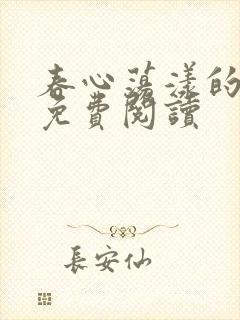 春心蕩漾的
免費閱讀
長安仙